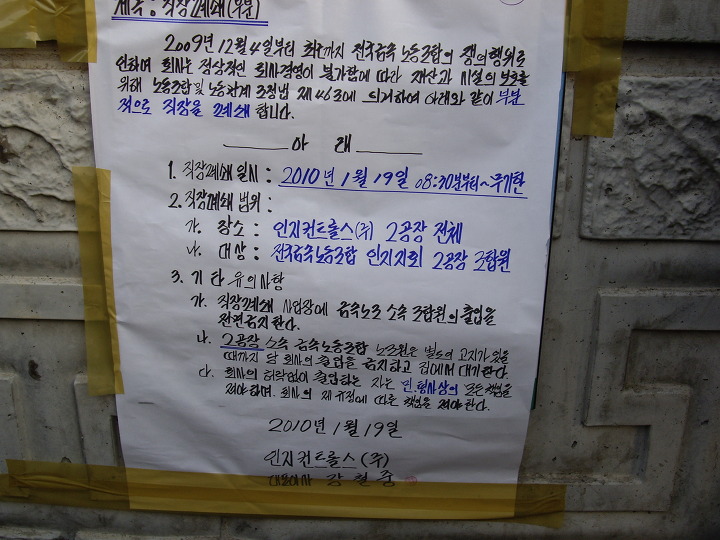 제목 : 직장폐쇄(부분)
2009년 12월 4일부터 현재까지 전국금속 노동조합의 쟁의행위로
인하여 회사는 정상적인 회사경영이 불가함에 따라 재산과 시설의 보호를
위해 노동조합 및 노동관계 조정법 제46조에 의거하여 아래와 같이 부분
적으로 직장을 폐쇄 합니다.
아 래
1. 직장폐쇄 일시 : 2010년 1월 19일 08:30분부터~무기한
2. 직장폐쇄 범위 :
가. 장소 : 인지컨트롤스(주) 2공장 전체
나. 대상 : 전국금속노동조합 인지지회 2공장 조합원
3. 기타 유의사항
가. 직장폐쇄 사업장에 금속노조 소속 조합원의 출입을
전면금지 한다.
나. 2공장 소속 금속노동조합 노조원은 별도의 고지가 있을
때까지 당 회사의 출입을 금지하고 집에서 대기한다.
다. 회사의 허락없이 출입하는 자는 민,형사상의 모든 책임을
져야하며, 회사의 제 규정에 따른 책임을 져야 한다.
2010년 1월 19일
인지컨트롤스(주)
대표이사